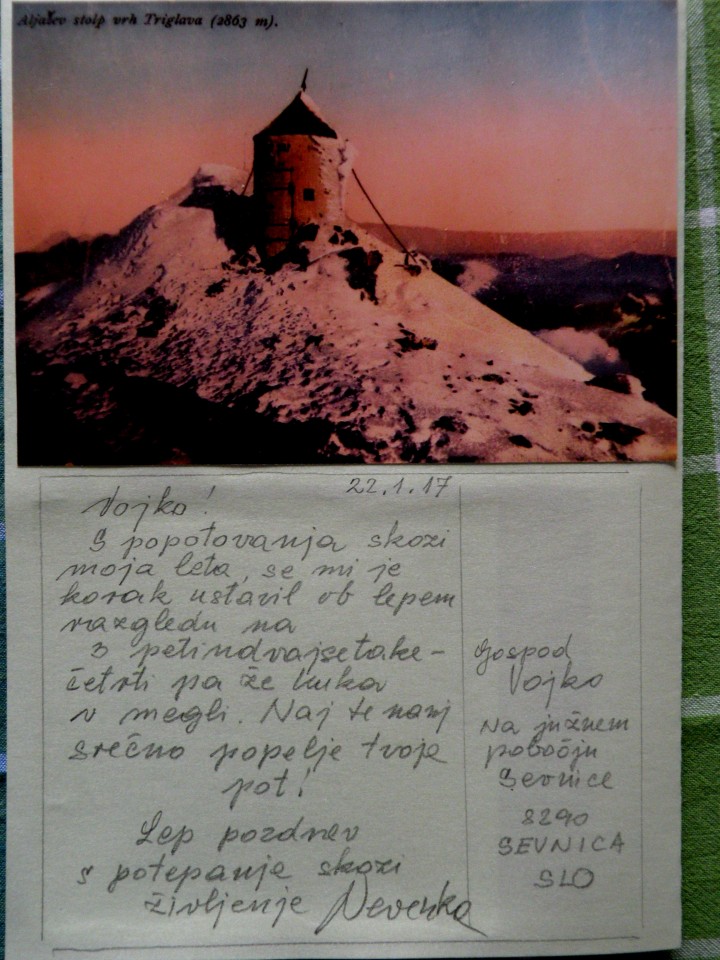 Aljažev stolp vrh Triglava (2863 m).
22.1.17
Vojko!
S popotovanja skozi
moja leta, se mi je
korak ustavil ob lepem
razgledu na
3 petindvajsetake-
četrti pa že kuka
v megli. Naj te nanj
srečno popelje tvoja
pot!
Lep pozdrav
s potepanja skozi
življenje Nevenka
Gospod
Vojko
Na južnem
pobočju
Sevnice
8290
SEVNICA
SLO